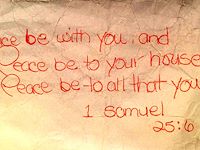 ace be with you, and
Peace be to your house
Peace be to all that you
1 Samuel
25:6